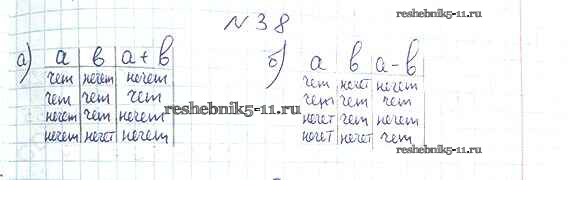 №38
reshebnik5-11.ru
а) a в a+в
чет нечет нечет
чет чет чет
нечет чет нечет
нечет нечет нечет
reshebnik5-11.ru
б) a в a-в
чет нечет нечет
чет чет чет
нечет чет нечет
нечет нечет чет
reshebnik5-11.ru